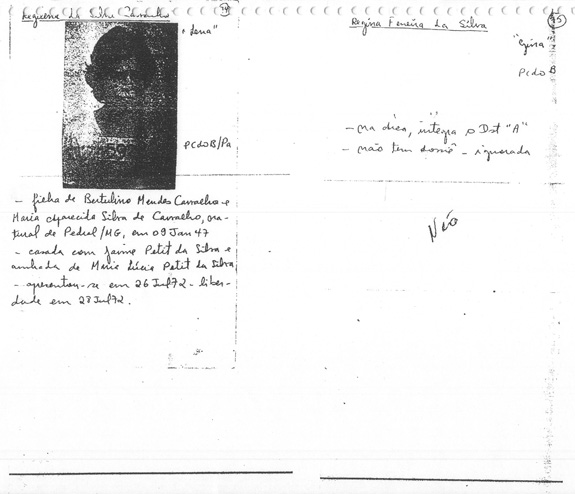 Regilena da Silva Carvalho
"Lena"
PCdoB/Pa
- filha de Bertulino Mendes Carvalho e
Maria Aparecida Silva de Carvalho, na-
tural de Pedral/MG, em 09 Jan 47
- casada com Jaime Petit da Silva e
cunhada de Maria Lúcia Petit da Silva
- apresentou-se em 26 Jul 72 - liber-
dade em 28 Jul 72.
Regina Ferreira da Silva
95
"Gina"
PCdoB
- na área, integra o Dst "A"
- não tem - ignorada
Não